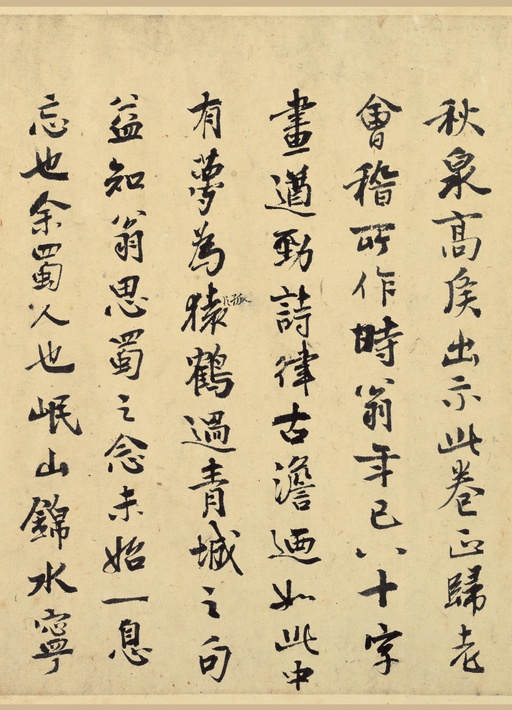 秋泉高侯出示此卷正歸老
會稽所作時翁年已八十字
畫遒勁詩律古澹乃如此中
有夢為猿鶴過青城之句
益知翁思蜀之念未始一息
忘也余蜀人也岷山錦水寧